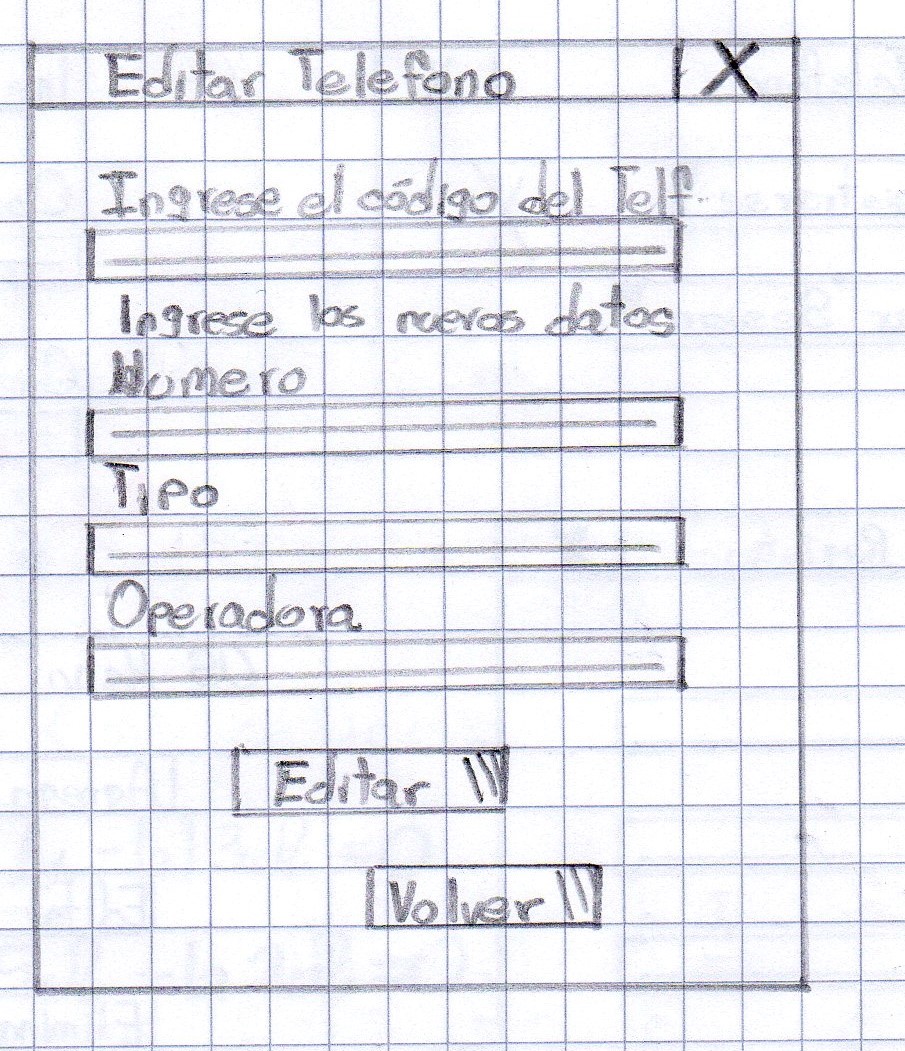 Editar Telefono X
Ingrese el código del Telf.
Ingrese los nuevos datos
Numero
Tipo
Operadora
Editar
Volver